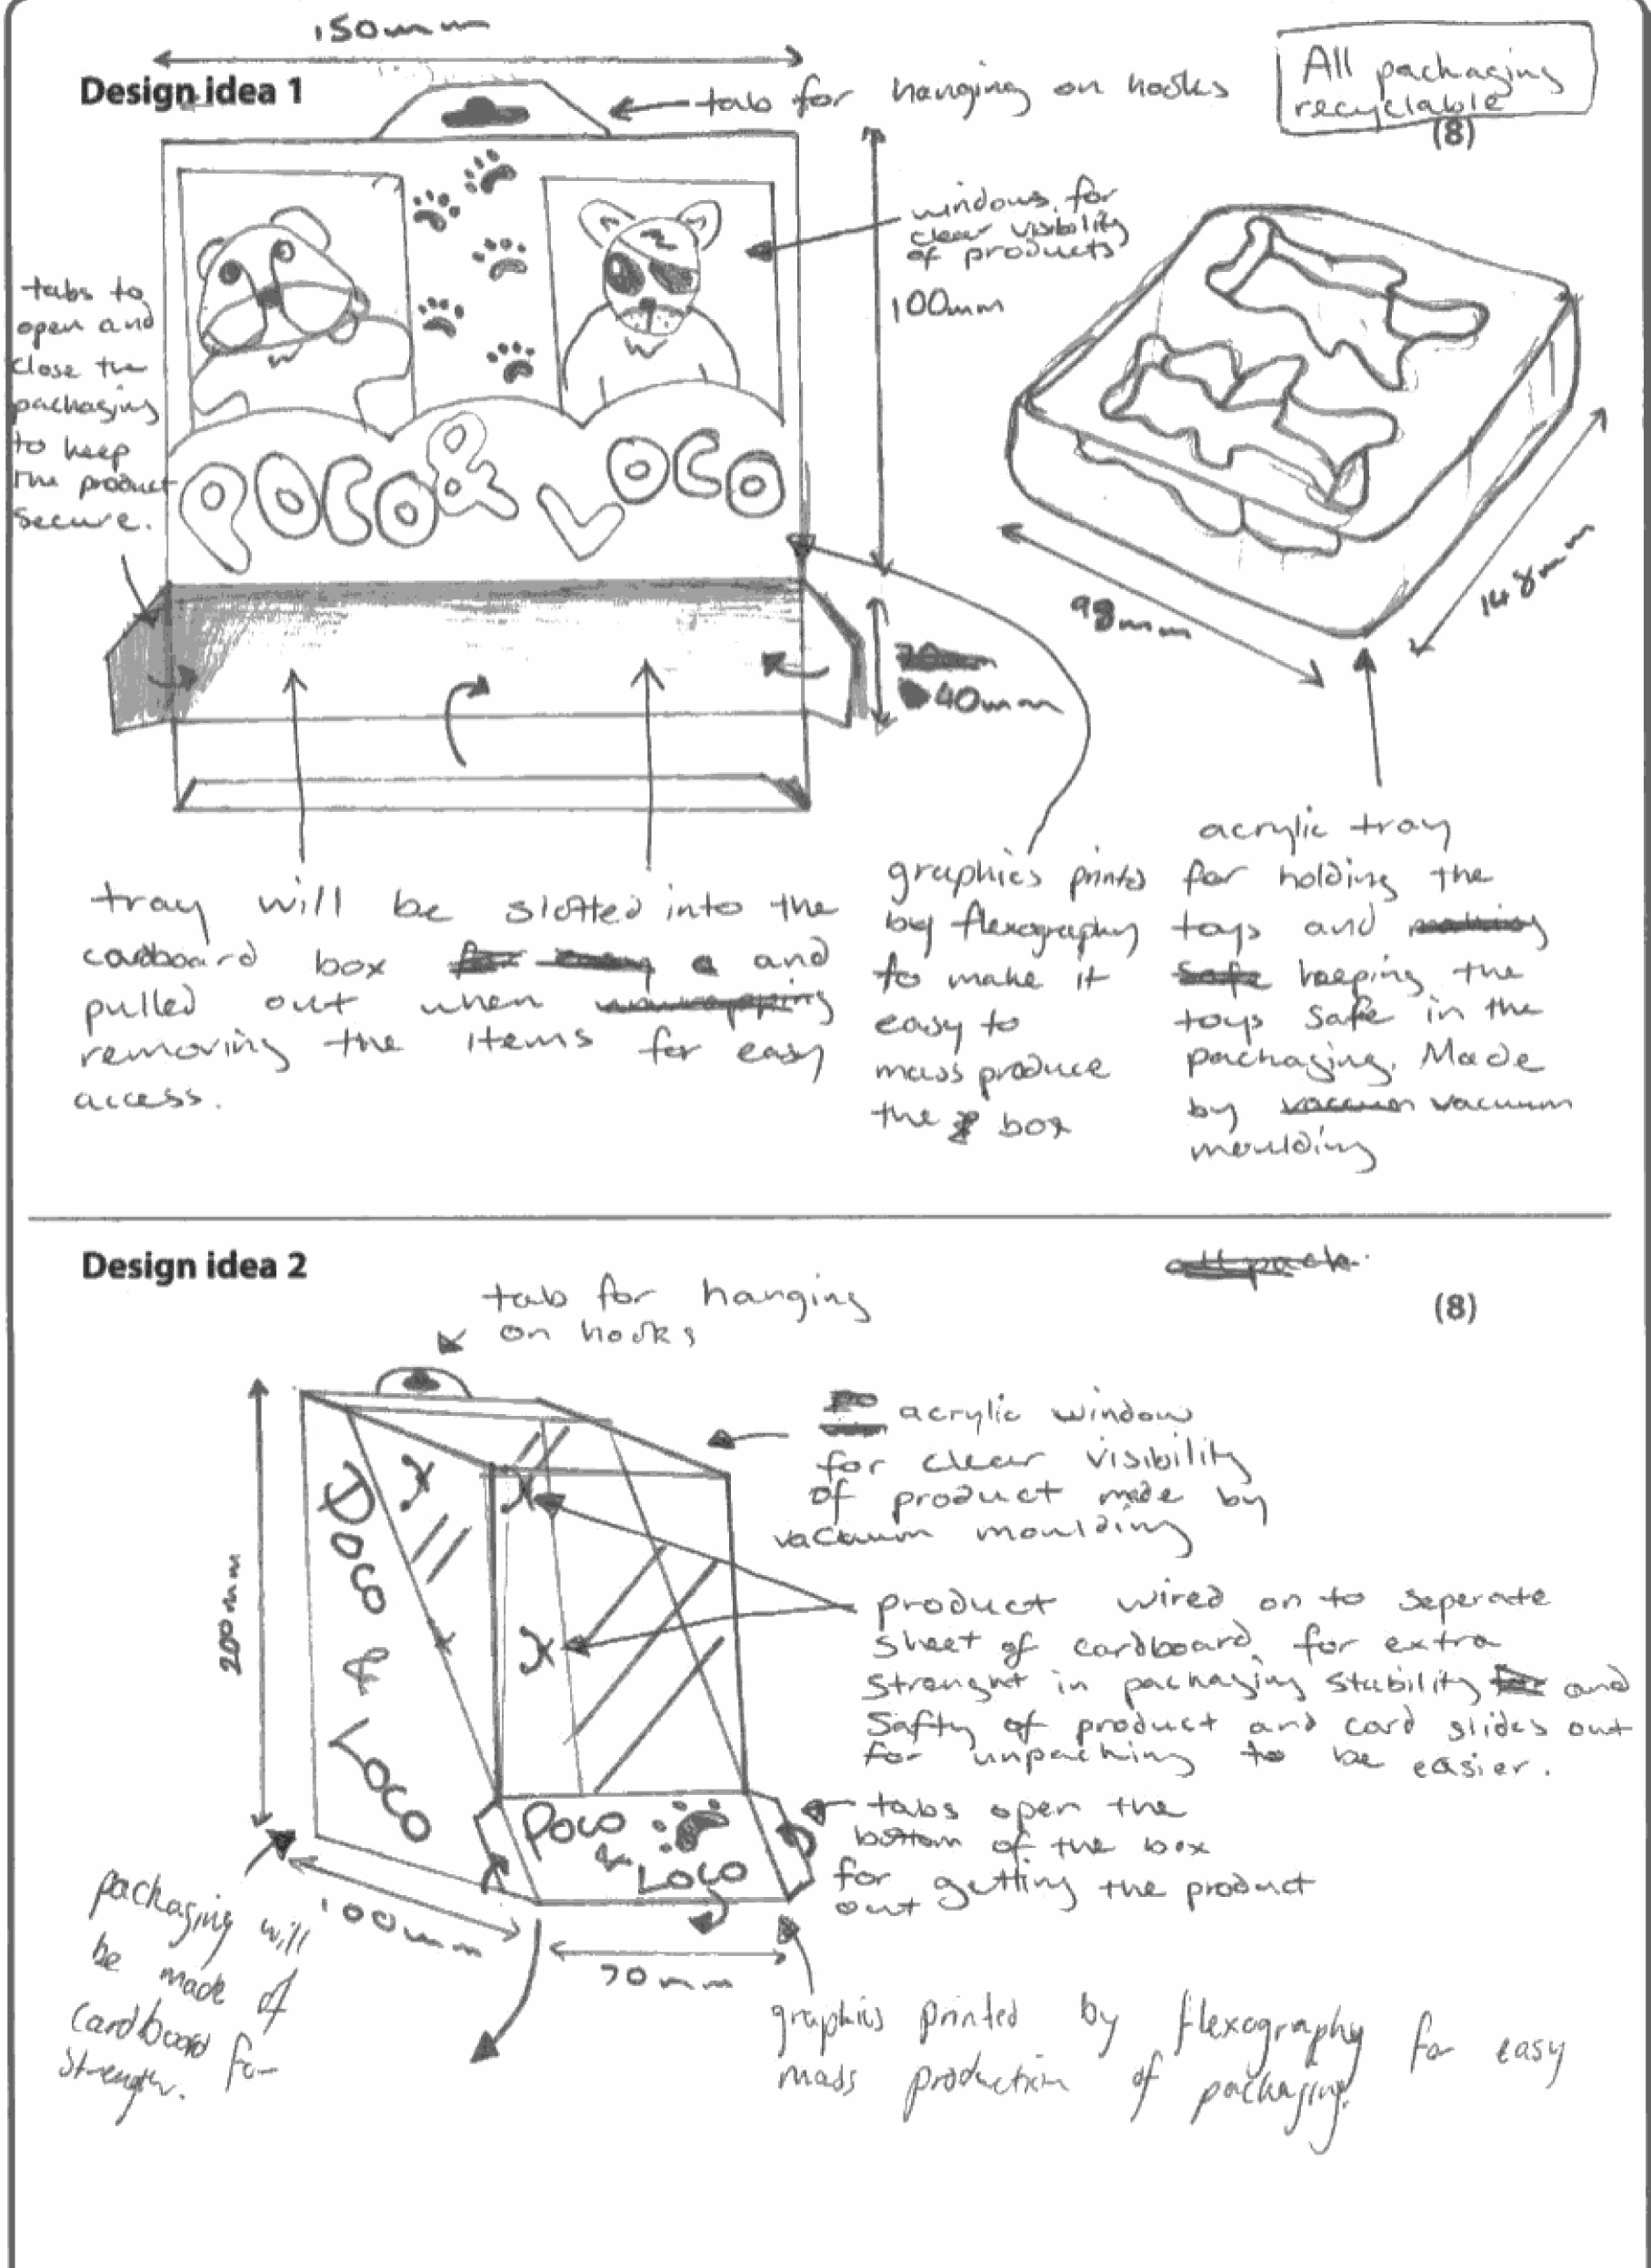 150mm
Design idea 1
tab for hanging on hooks
All packaging
recyclable
(8)
windows for
clear visibility
of products
100mm
tabs to
open and
close the
packaging
to keep
the product
secure.
POCO & LOCO
98mm
148mm
40mm
tray will be slotted into the
cardboard box and
pulled out when
removing the items for easy
access.
graphics printed
by flexography
to make it
easy to
mass produce
the box
acrylic tray
for holding the
toys and
keeping the
toys safe in the
packaging. Made
by vacuum
moulding
Design idea 2
(8)
tab for hanging
on hooks
acrylic window
for clear visibility
of product made by
vacuum moulding
200mm
Poco & Loco
product wired on to seperate
sheet of cardboard for extra
strenght in packaging stability and
safty of product and card slides out
for unpacking to be easier.
tabs open the
bottom of the box
for getting the product
out
Poco
&
Loco
100mm
70mm
packaging will
be made of
cardboard for
strength.
graphics printed by flexography for easy
mass production of packaging.